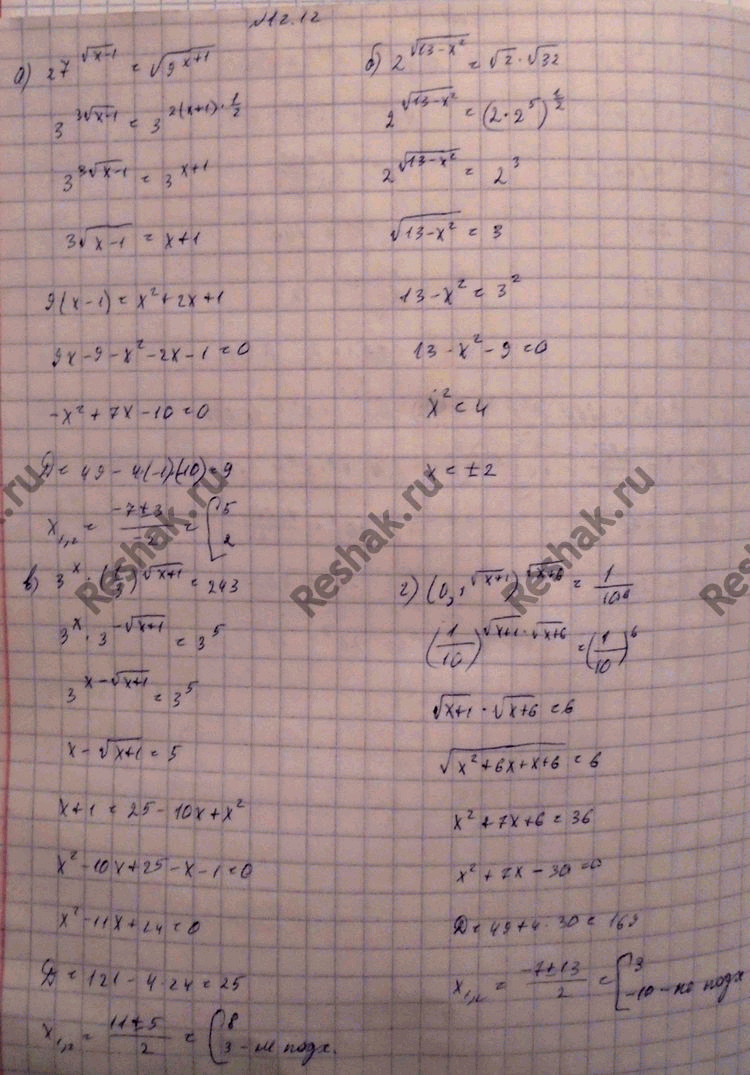 №12.12
а) 27^√(x-1) = √(9^(x+1))
3^(3√(x-1)) = 3^(2(x+1)·1/2)
3^(3√(x-1)) = 3^(x+1)
3√(x-1) = x+1
9(x-1) = x²+2x+1
9x-9-x²-2x-1=0
-x²+7x-10=0
D = 49-4(-1)(-10)=9
x₁,₂ = (-7±3)/(-2) = [5
2
б) 2^√(13-x²) = √2·√32
2^√(13-x²) = (2·2⁵)^(1/2)
2^√(13-x²) = 2³
√(13-x²) = 3
13-x² = 3²
13-x²-9=0
x²=4
x=±2
в) 3^x·(1/3)^√(x+1) = 243
3^x·3^(-√(x+1)) = 3⁵
3^(x-√(x+1)) = 3⁵
x-√(x+1) = 5
x+1 = 25-10x+x²
x²-10x+25-x-1=0
x²-11x+24=0
D = 121-4·24=25
x₁,₂ = (11±5)/2 = [8
3 - не подх.
г) (0,1^√(x+1))^√(x+6) = 1/10⁶
(1/10)^(√(x+1)·√(x+6)) = (1/10)⁶
√(x+1)·√(x+6) = 6
√(x²+6x+x+6) = 6
x²+7x+6=36
x²+7x-30=0
D=49+4·30=169
x₁,₂ = (-7±13)/2 = [3
-10 - не подх
Reshak.ru
Reshak.ru
Reshak.ru
Reshak.ru